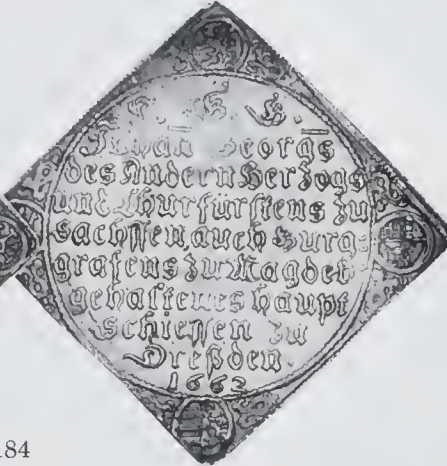 Johan Georgs
des Andern Herzogs
und Churfürstens zu
sachssen, auch Burg-
grafens zu Magdeb
gehaltenes haupt
schiessen zu
Dreßden.
1662
184